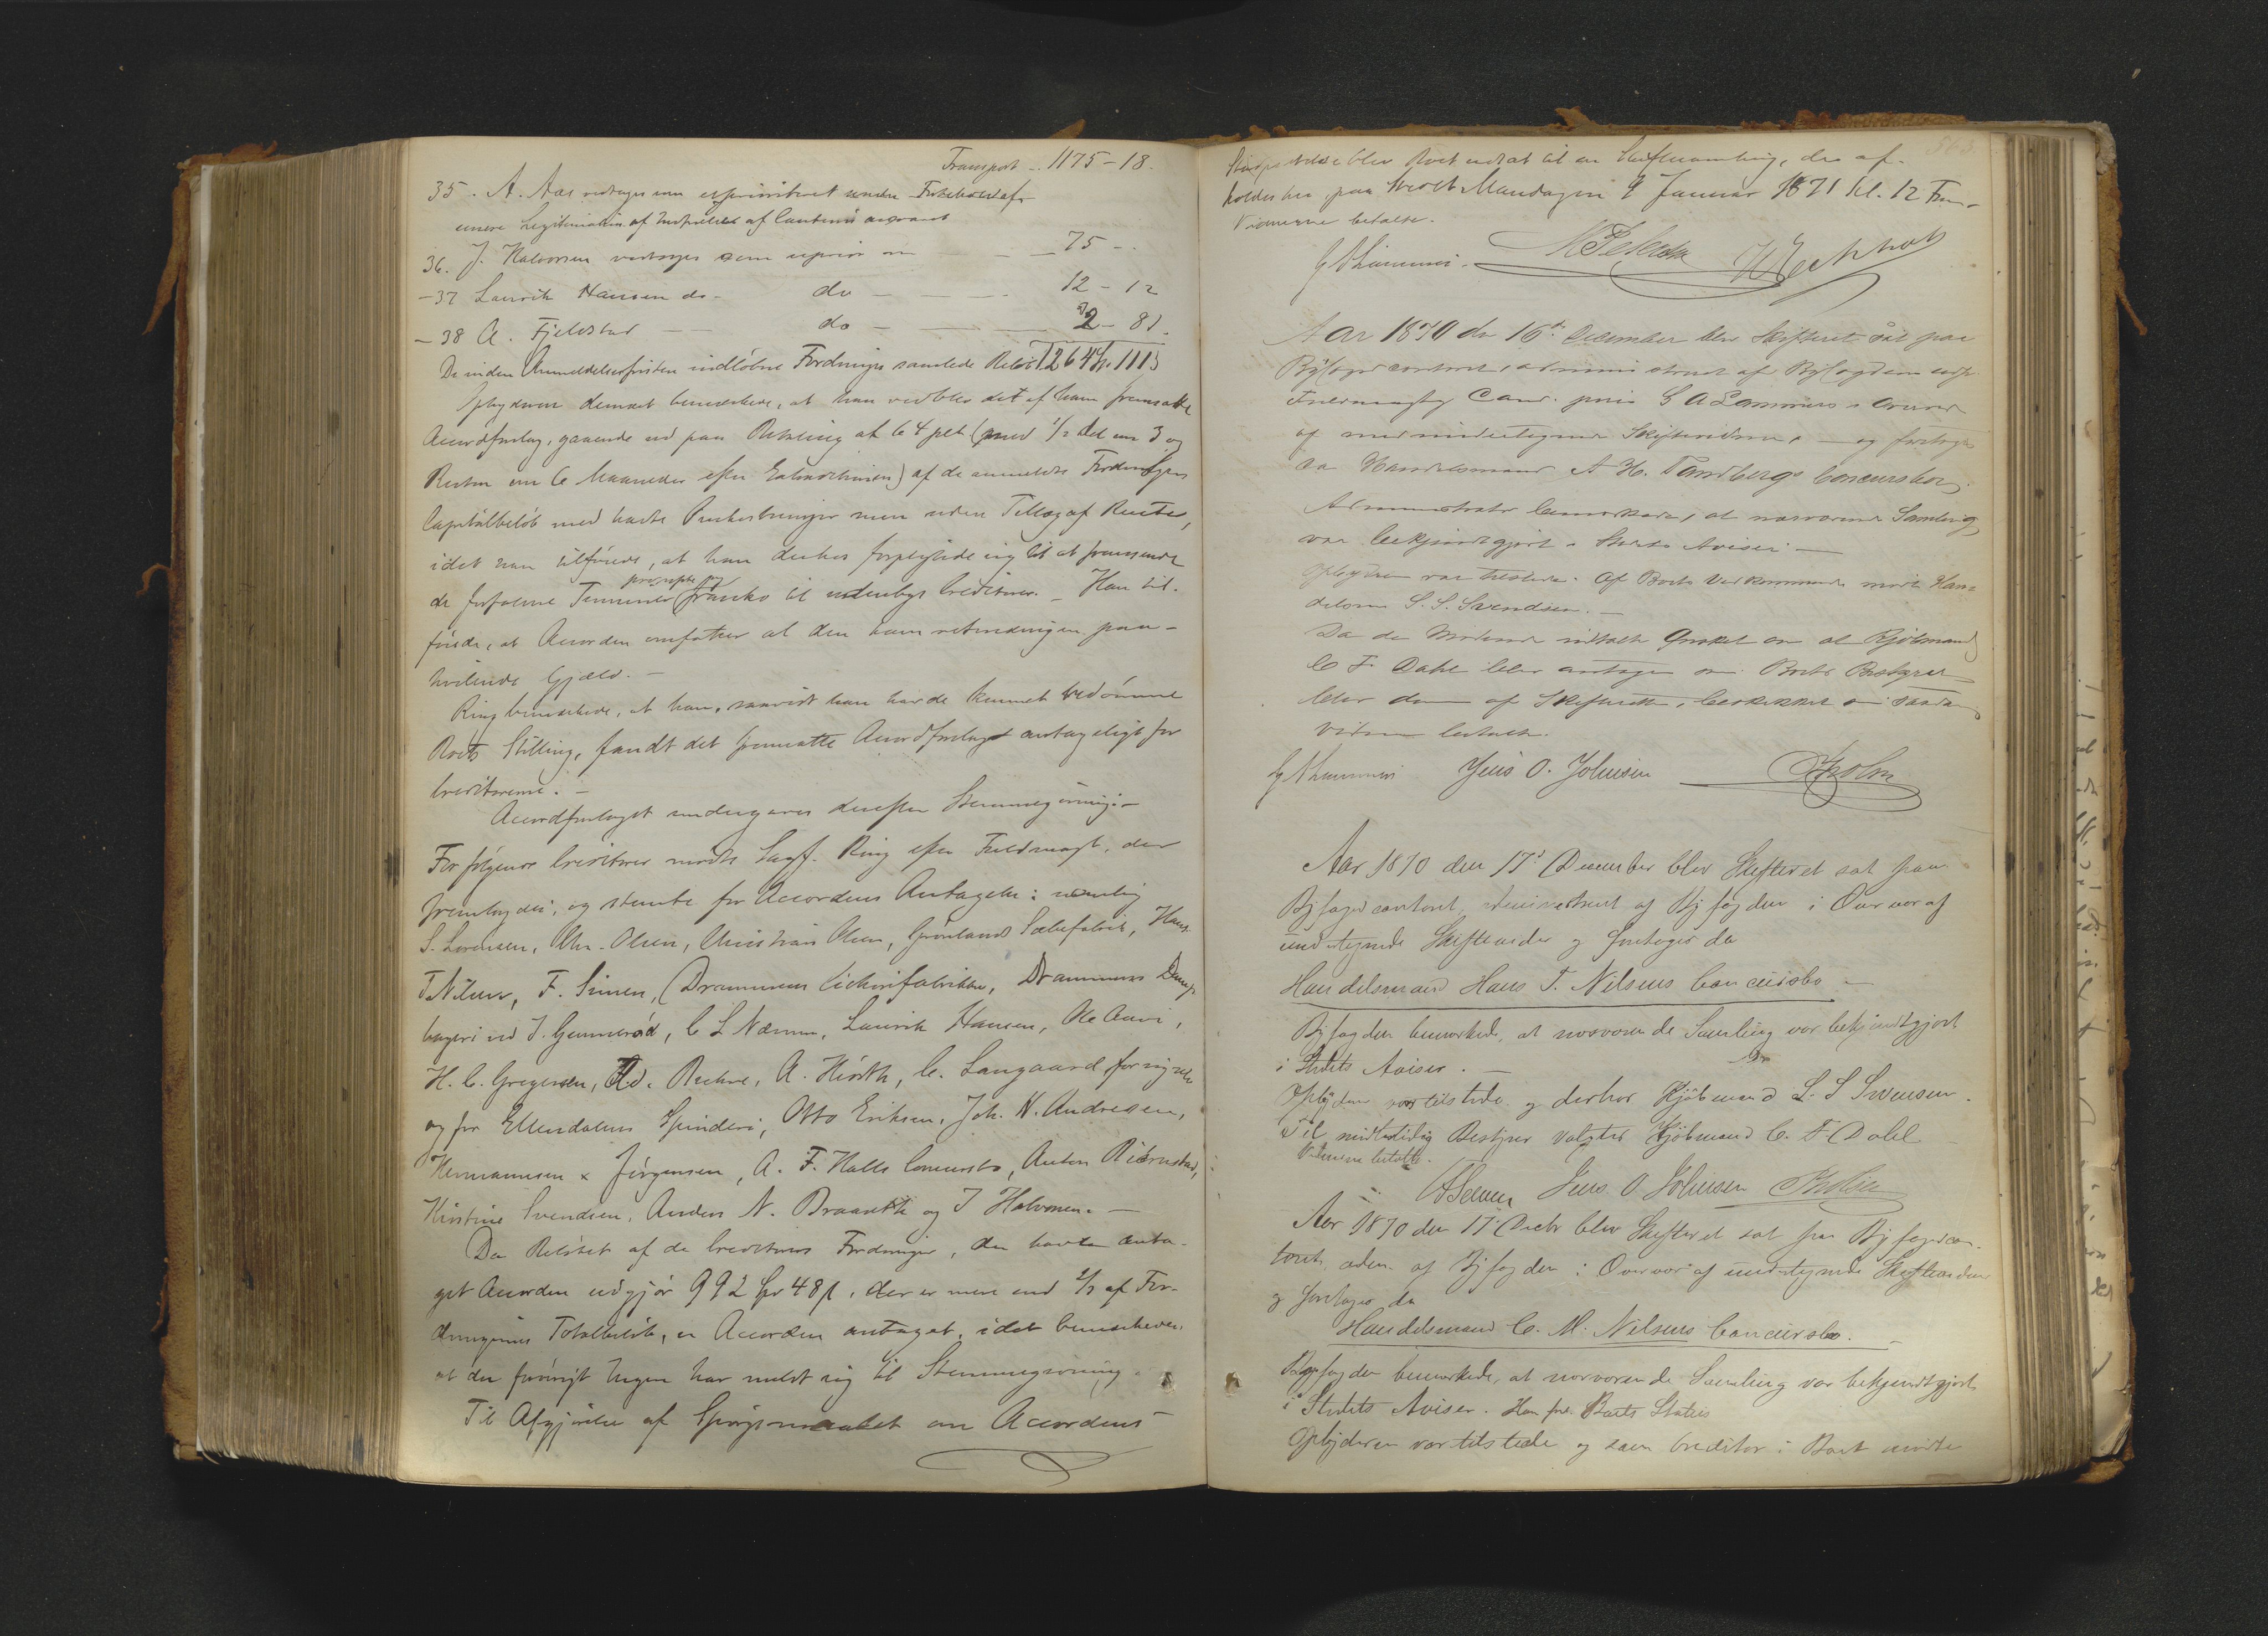 Transport .. 1175-18.
35. A. Aas vedtages som uprioriteret under Forbehold af
36. J. Halvorsen vedtages som uprior om 75 - .
-37 Laurik Hansen do- do 12-12
-38 A. Fjeldstad do 2-81.
De inden Anmeldelsesfristen indløbne Fordringers samlede Beløb 1264
Opbyderen dernæst bemærkede, at han vedblev det af ham fremsatte
Accordforslag, gaaende ud paa Betaling af 64 pCt (med 1/2 Del om 3 og
Resten om 6 Maaneder efter Extraditionen) af de anmeldte Fordringers
Capitalbeløb med havte Omkostninger men uden Tillæg af Renter,
idet han tilføiede, at han derhos forpligtede sig til at fremsende
de forfaldne Terminer franko til udenbyes Creditorer. - Han til-
føiede, at Accorden omfatter al den ham paa-
hvilende Gjæld. -
Ring bemærkede, at han, saavidt han havde kunnet bedømme
Boets Stilling, fandt det fremsatte Accordforslag antageligt for
Creditorerne. -
Accordforslaget undergaves derefter Stemmegivning: -
For følgende Creditorer mødte Sagf. Ring efter Fuldmagt, der
fremlagdes, og stemte for Accordens Antagelse: nemlig
S. Sørensen, Chr. Olsen, Christian Olsen, Grønlands Sæbefabrik, Hans
T. Nilsen, F. Simen, Drammens Cichorifabrikker, Drammens Damp-
bageri ved J. Gunnerød, C. L. Nærum, Laurik Hansen, Ole Aavi,
H. C. Gregersen, Ad. Buchne, A. Hirsth, C. Langaard for sig selv
og for Ellendalens Spinderi, Otto Eriksen, Joh. N. Andresen,
Hermannsen & Jørgensen, A. F. Halls Concursbo, Anton Biørnstad,
Kirstine Svendsen, Anders N. Braarth og J Halvorsen. -
Da Beløbet af de Creditorers Fordringer, der havde anta-
get Accorden udgjør 992 Spd 48 s, der er mere end 2/3 af For-
dringernes Totalbeløb, er Accorden antaget, idet bemærkedes,
at der forøvrigt Ingen har meldt sig til Stemmegivning.
Til Afgjørelse af Spørgsmaalet om Accordens
Stadfæstelse blev Boet udsat til en Skiftesamling, der af-
holdes her paa Stedet Mandagen 9 Januar 1871 Kl. 12 Form.
Vidnerne betalte.
G A Lammers.
Aar 1870 den 16de December blev Skifteret sat paa
Byfogedcontoret, administreret af Byfogdens edsv.
Fuldmægtig Cand. juris G A Lammers i Overvær
af medundertegnede Skiftevidner, - og foretoges
da Handelsmand A. H. Tandbergs Concursbo.
Administrator bemærkede, at nærværende Samling
var bekjendtgjort i Stedets Aviser -
Opbyderen var tilstede. Af Boets Vedkommende mødte Han-
delsm S. S. Svendsen. -
Da de Mødende udtalte Ønsket om at Kjøbmand
C F. Dahl blev antagen som Boets Bestyrer
blev denne af Skifteretten beskikket som saadan
Vidnerne betalte.
G A Lammers Jens O. Johnsen Holm
Aar 1870 den 17de December blev Skifteret sat paa
Byfogedcontoret, administreret af Byfogden i Overvær af
undertegnede Skiftevidner og foretoges da
Handelsmand Hans T. Nilsens Concursbo -
Byfogden bemærkede, at nærværende Samling var bekjendtgjort
i Stedets Aviser. -
Opbyderen var tilstede og derhos Kjøbmand S. S Svensen.
Til midlertidig Bestyrer valgtes Kjøbmand C. F. Dahl
Vidnerne betalte.
Jens O. Johnsen Holm
Aar 1870 den 17de Decbr blev Skifteret sat paa Byfogedcon-
toret, adm. af Byfogden i Overvær af undertegnede Skiftevidner
og foretoges da
Handelsmand C. M. Nilsens Concursbo. -
Byfogden bemærkede, at nærværende Samling var bekjendtgjort
i Stedets Aviser. Han frl. Boets Status
Opbyderen var tilstede og som Creditor i Boet mødte